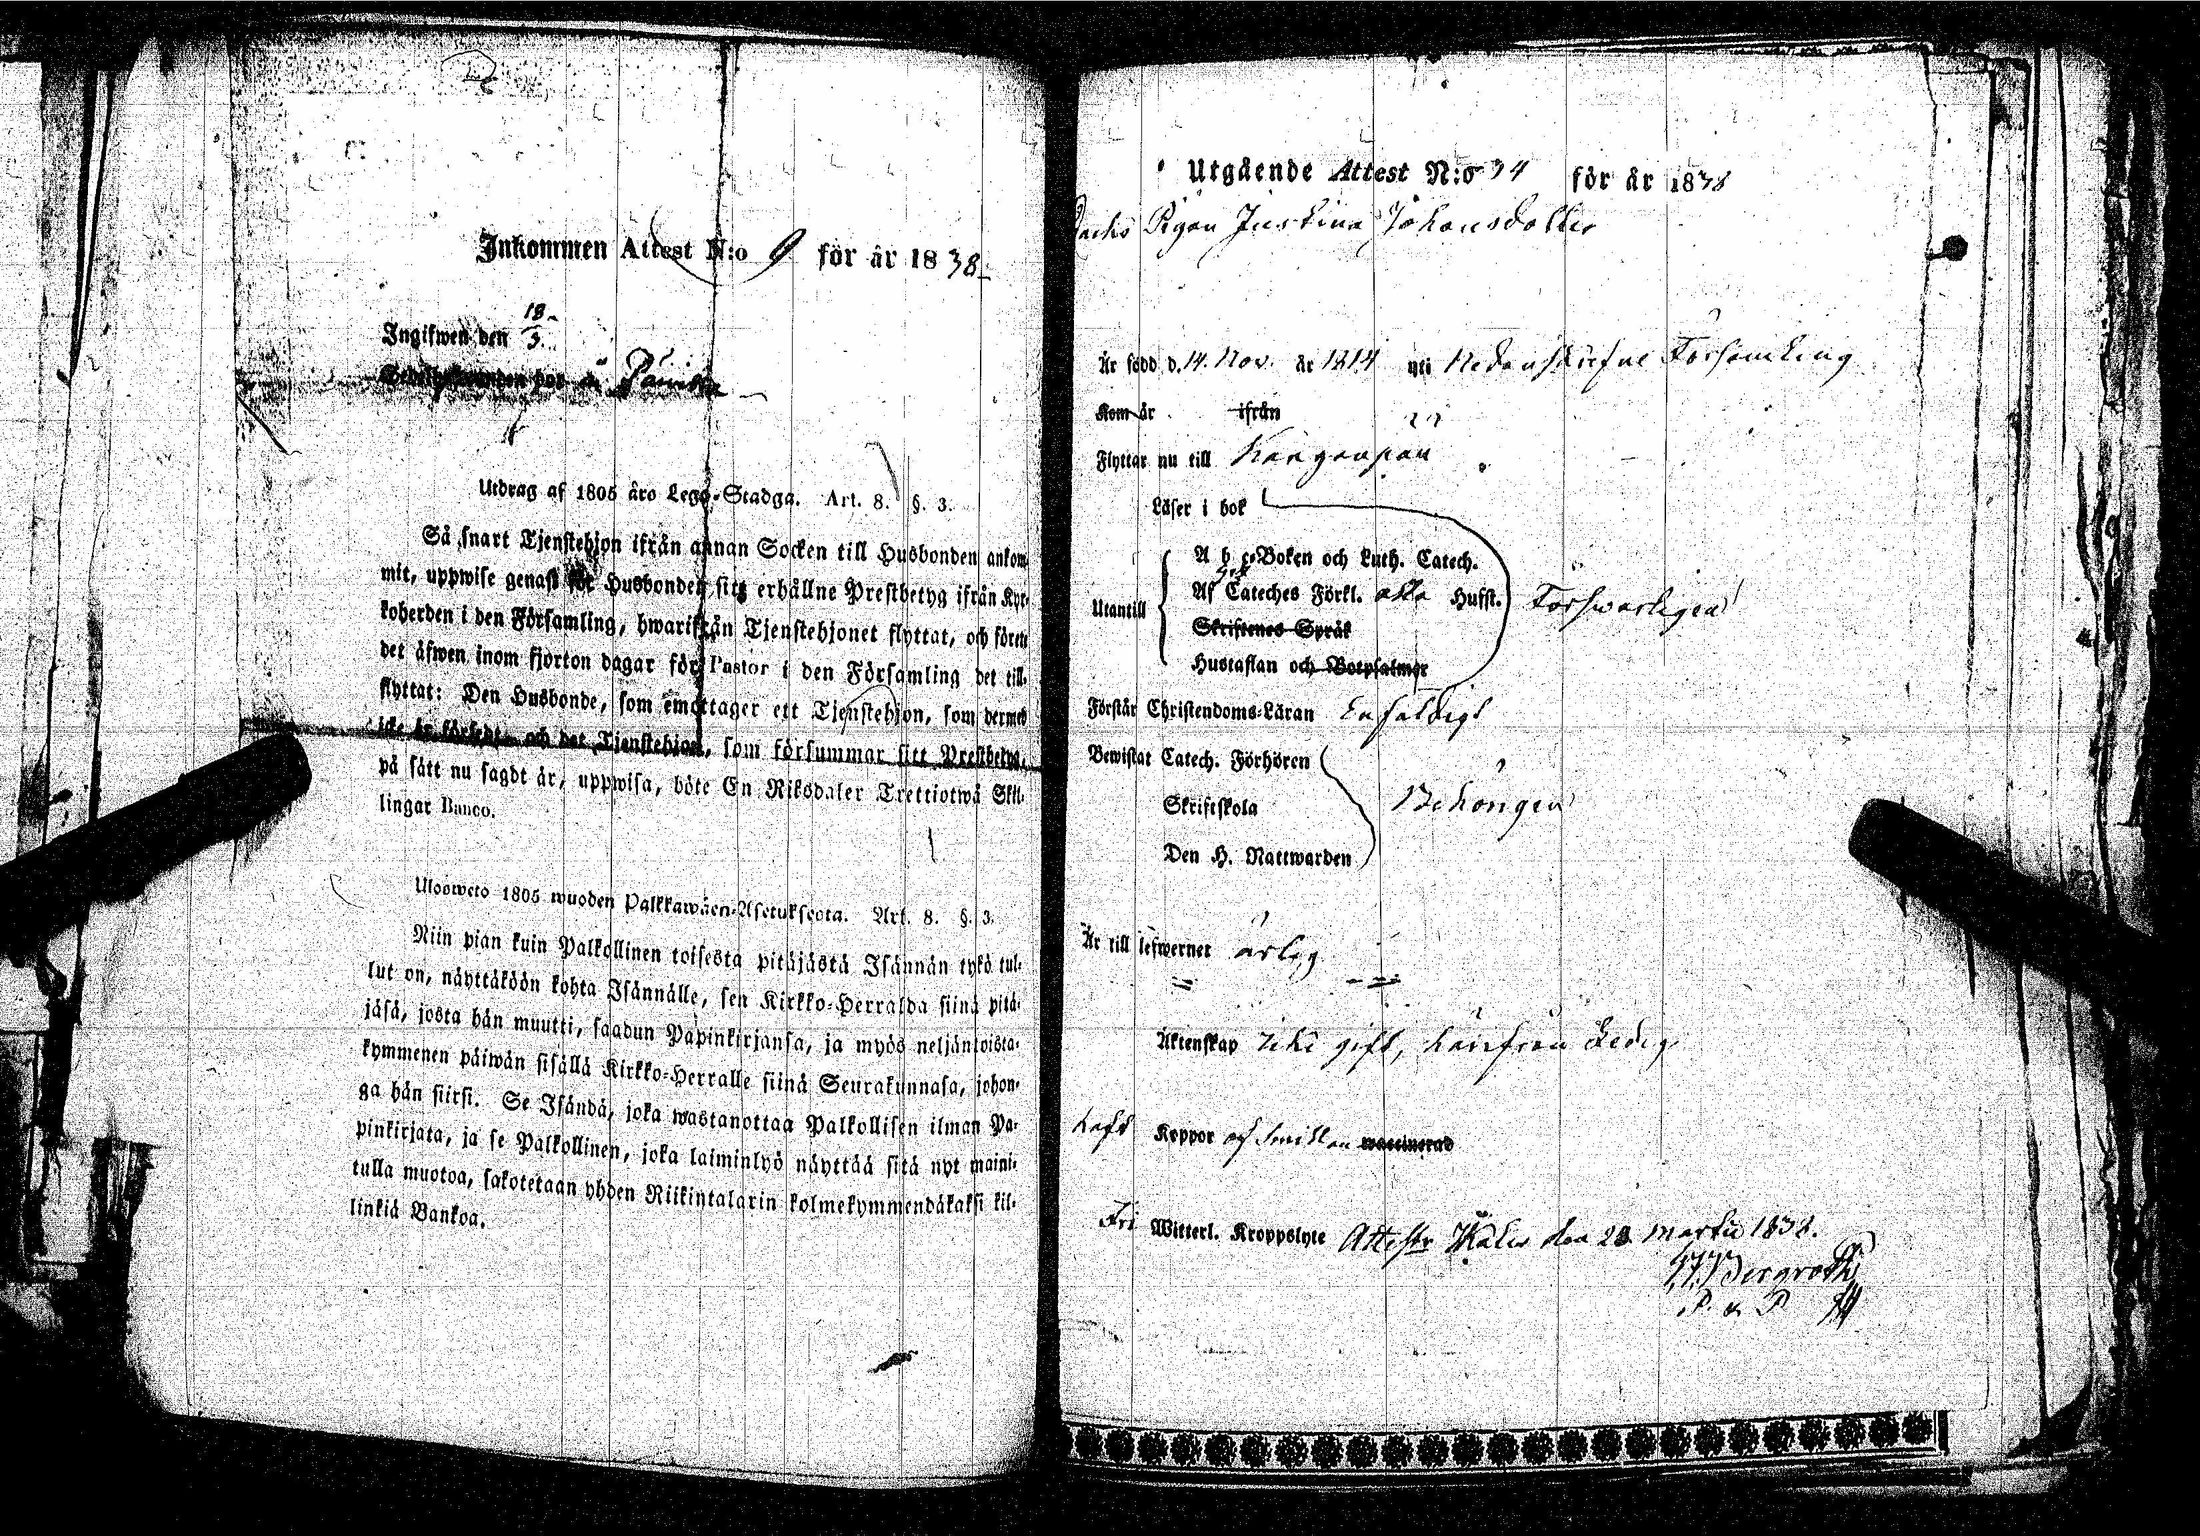 Inkommen Attest N:o 9 för år 1838
Ingifwen den 18/5
Utdrag af 1805 års Lego-Stadga. Art. 8. §. 3.
Så snart Tjenstehjon ifrån annan Socken till Husbonden ankom-
mit, uppwise genast för Husbonden sitt erhållne Prestbetyg ifrån Kyr-
koherden i den Församling, hwarifrån Tjenstehjonet flyttat, och förete
det äfwen inom fjorton dagar för Pastor i den Församling det till-
flyttat: Den Husbonde, som emottager ett Tjenstehjon, som dermed
icke är försedt, och det Tjenstehjon, som försummar sitt Prestbetyg,
på sätt nu sagdt är, uppwisa, böte En Riksdaler Trettiotwå Skil-
lingar Banco.
Ulosweto 1805 wuoden Palkkawäen-Asetuksesta. Art. 8. §. 3.
Niin pian kuin Palkollinen toisesta pitäjästä Isännän tykö tul-
lut on, näyttäköön kohta Isännälle, sen Kirkko-Herralda siinä pitä-
jäsä, josta hän muutti, saadun Papinkirjansa, ja myös neljäntoista-
kymmenen päiwän sisällä Kirkko-Herralle siinä Seurakunnasa, johon-
ga hän siirsi. Se Isändä, joka wastanottaa Palkollisen ilman Pa-
pinkirjata, ja se Palkollinen, joka laiminlyö näyttää sitä nyt maini-
tulla muotoa, sakotetaan yhden Riikintalarin kolmekymmendäkaksi kil-
linkiä Bankoa.
Utgående Attest N:o 34 för år 1838
Pigan Justina Johansdotter
Är född d. 14 Nov. år 1814 uti Nedanskrefne Församling
Kom år ifrån
Flyttar nu till Kanganpää
Läser i bok
Utantill
A b c-Boken och Luth. Catech.
Af Cateches Förkl. Husst.
Skriftenes Språk
Hustaflan och Botpsalmer
Försvarligen
Förstår Christendoms-Läran Enfaldigt
Bewistat Catech. Förhören
Skriftskola
Den H. Nattwarden
Behörigen
Är till lefwernet ärlig
Äktenskap icke gift, härifrån ledig
haft Koppor waccinerad
Fri Witterl. Kroppslyte den 28 Martii 1838.
Bergroth